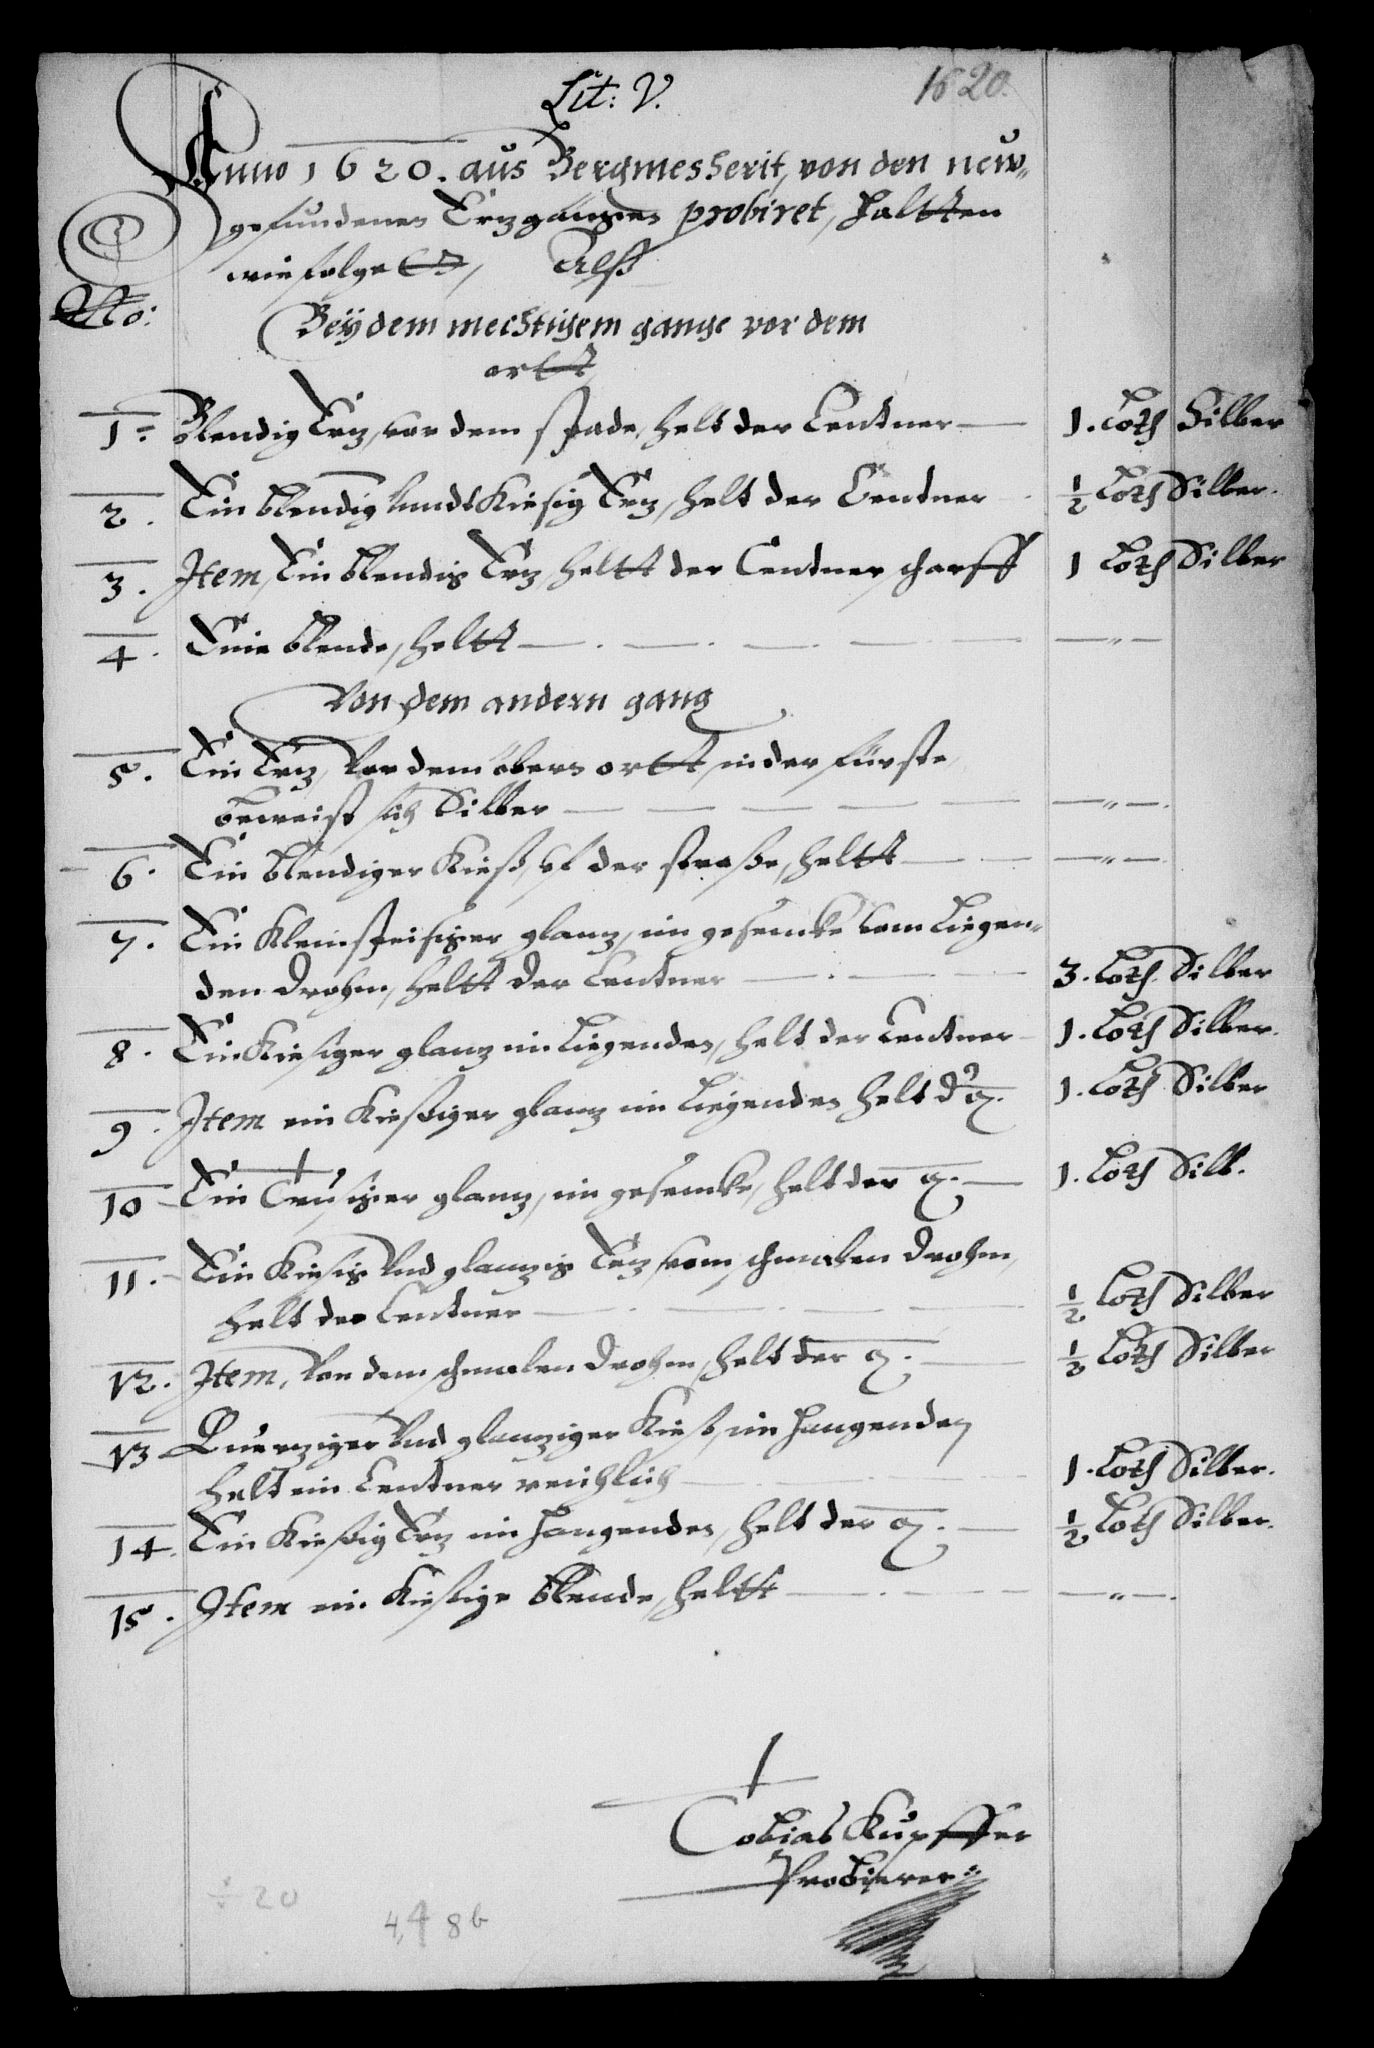 Lit: V.
1620.
Anno 1620. aus Bergmesserit, von den new-
gefundenen Ertzgängen probiret, haltten
wie folgett, Alß
No:
Beÿ dem mechtigem gange vor dem
ortt
1. Blendig Ertz, vor dem stade, helt der Centner — 1. Loth Silber
2. Ein blendig vundt Kiesig Ertz, helt der Centner ½ Loth Silber.
3. Item, Ein blendig Ertz, heltt der Centner scharff 1 Loth Silber
4. Eine blende, heltt — . — . — . — — — „ —
Von dem andern gang
5. Ein Ertz, Vor dem öbern ortt, in der fürste,
beweist sich Silber — — — — — — „ — .
6. Ein blendiger Kieß, vf der straße, heltt — — — „ —
7. Ein Klein speisiger glantz, im gesencke vom Liegen-
den Drohm, heltt der Centner — . — — 3. Loth Silber
8. Ein Kiesiger glantz im Liegenden, helt der Centner 1. Loth Silber.
9. Item ein Kießiger glantz im Liegenden helt d 1. Loth Silber
10 Ein glantz, im gesencke, helt der — 1. Loth Silb.
11. Ein Kiesig Vnd glantzig Ertz, vom schmalen Drohm,
helt der Centner — . — . — — ½ Loth Silber
12. Item, Von dem schmalen Drohm, helt der — ½ Loth Silber
13 Quertziger Vnd glantziger Kieß, im hangenden
helt ein Centner reichlich — — 1. Loth Silber.
14. Ein Kießig Ertz im hangenden, helt der — ½ Loth Silber.
15. Item ein Kießige blende, heltt — . — — — „ — .
Tobias Kupffer
Probierer
20
4,4 8b